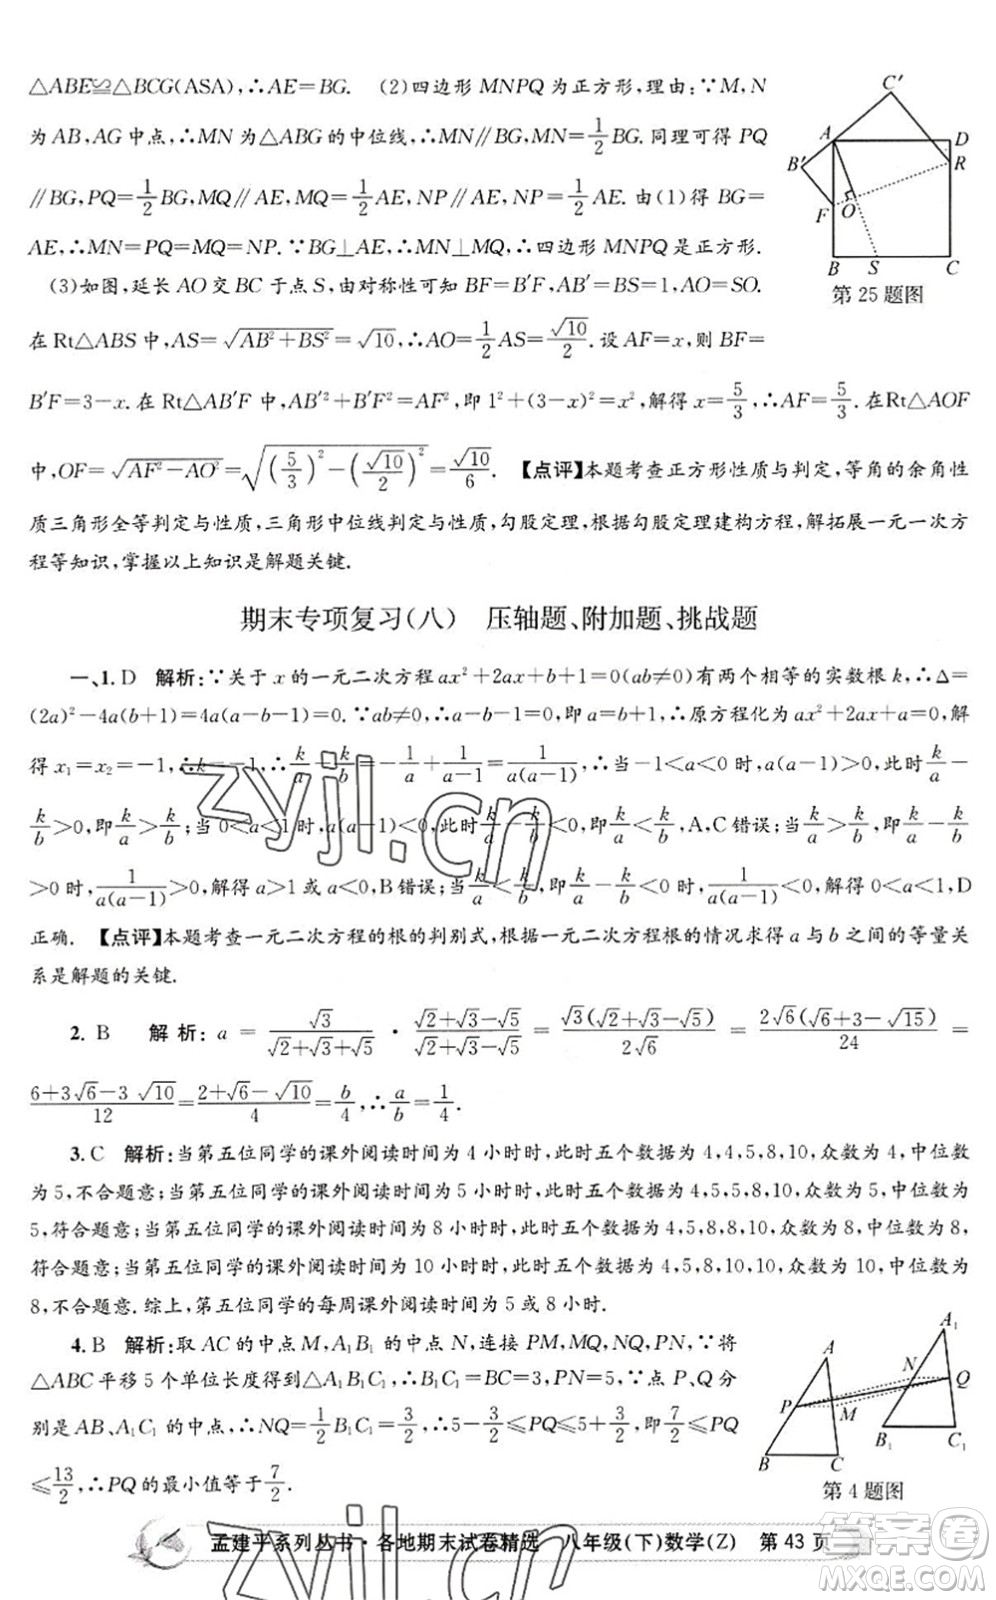 △ABE≌△BCG(ASA),∴AE=BG. (2)四边形 MNPQ 为正方形,理由:∵M,N
为 AB,AG 中点,∴MN 为△ABG 的中位线,∴MN∥BG,MN=1/2BG. 同理可得 PQ
∥BG,PQ=1/2BG,MQ∥AE,MQ=1/2AE,NP∥AE,NP=1/2AE. 由(1)得 BG=
AE,∴MN=PQ=MQ=NP. ∵BG⊥AE,∴MN⊥MQ,∴四边形 MNPQ 是正方形.
(3)如图,延长 AO 交 BC 于点 S,由对称性可知 BF=B′F,AB′=BS=1,AO=SO.
在 Rt△ABS 中,AS=√(AB²+BS²)=√10,∴AO=1/2AS=√10/2. 设 AF=x,则
B′F=3-x. 在 Rt△AB′F 中,AB′²+B′F²=AF²,即 1²+(3-x)²=x²,解得 x=5/3,∴AF=5/3. 在Rt△AOF
中,OF=√(AF²-AO²)=√((5/3)²-(√10/2)²)=√10/6. 【点评】本题考查正方形性质与判定,等角的余角性
质三角形全等判定与性质,三角形中位线判定与性质,勾股定理,根据勾股定理建构方程,解拓展一元一次方
程等知识,掌握以上知识是解题关键.
C′
A
D
R
B′
F
O
B
S
C
第 25 题图
期末专项复习(八) 压轴题、附加题、挑战题
一、1. D 解析:∵关于 x 的一元二次方程 ax²+2ax+b+1=0(ab≠0)有两个相等的实数根 k,∴Δ=
(2a)²-4a(b+1)=4a(a-b-1)=0. ∵ab≠0,∴a-b-1=0,即 a=b+1,∴原方程化为 ax²+2ax+a=0,解
得 x₁=x₂=-1,∴k=-1,∴k/a-k/b=-1/a+1/(a-1)=1/(a(a-1)),∴当-1<a<0 时,a(a-1)>0,此时 k/a-
k/b>0,即 k/a>k/b;当 0<a<1 时,a(a-1)<0,此时 k/a-k/b<0,即 k/a<k/b,A,C 错误;当 k/a>k/b,即 k/a-k/b
>0 时,1/(a(a-1))>0,解得 a>1 或 a<0,B 错误;当 k/a<k/b,即 k/a-k/b<0 时,1/(a(a-1))<0,解得 0<a<1,D
正确. 【点评】本题考查一元二次方程的根的判别式,根据一元二次方程的根的情况求得 a 与 b 之间的等量关
系是解题的关键.
2. B 解析:a=√3/(√2+√3+√5)·(√2+√3-√5)/(√2+√3-√5)=√3(√2+√3-√5)/(2√6)=2√6(√6+3-√15)/24=
(6+3√6-3√10)/12=(2+√6-√10)/4=b/4,∴a/b=1/4.
3. C 解析:当第五位同学的课外阅读时间为 4 小时时,此时五个数据为 4,4,5,8,10,众数为 4,中位数为
5,不合题意;当第五位同学的课外阅读时间为 5 小时时,此时五个数据为 4,5,5,8,10,众数为 5,中位数为
5,符合题意;当第五位同学的课外阅读时间为 8 小时时,此时五个数据为 4,5,8,8,10,众数为 8,中位数为 8,
符合题意;当第五位同学的课外阅读时间为 10 小时时,此时五个数据为 4,5,8,10,10,众数为 10,中位数为
8,不合题意. 综上,第五位同学的每周课外阅读时间为 5 或 8 小时.
4. B 解析:取 AC 的中点 M,A₁B₁ 的中点 N,连接 PM,MQ,NQ,PN,∵将
△ABC 平移 5 个单位长度得到△A₁B₁C₁,∴B₁C₁=BC=3,PN=5,∵点 P,Q 分
别是 AB、A₁C₁ 的中点,∴NQ=1/2B₁C₁=3/2,∴5-3/2≤PQ≤5+3/2,即 7/2≤PQ
≤13/2,∴PQ 的最小值等于 7/2.
A₁
A
N
P
M
Q
B₁
C₁
B
C
第 4 题图
孟建平系列丛书·各地期末试卷精选 八年级(下)数学(Z) 第 43 页
zyjl.cn
答案圈
MXQE.COM